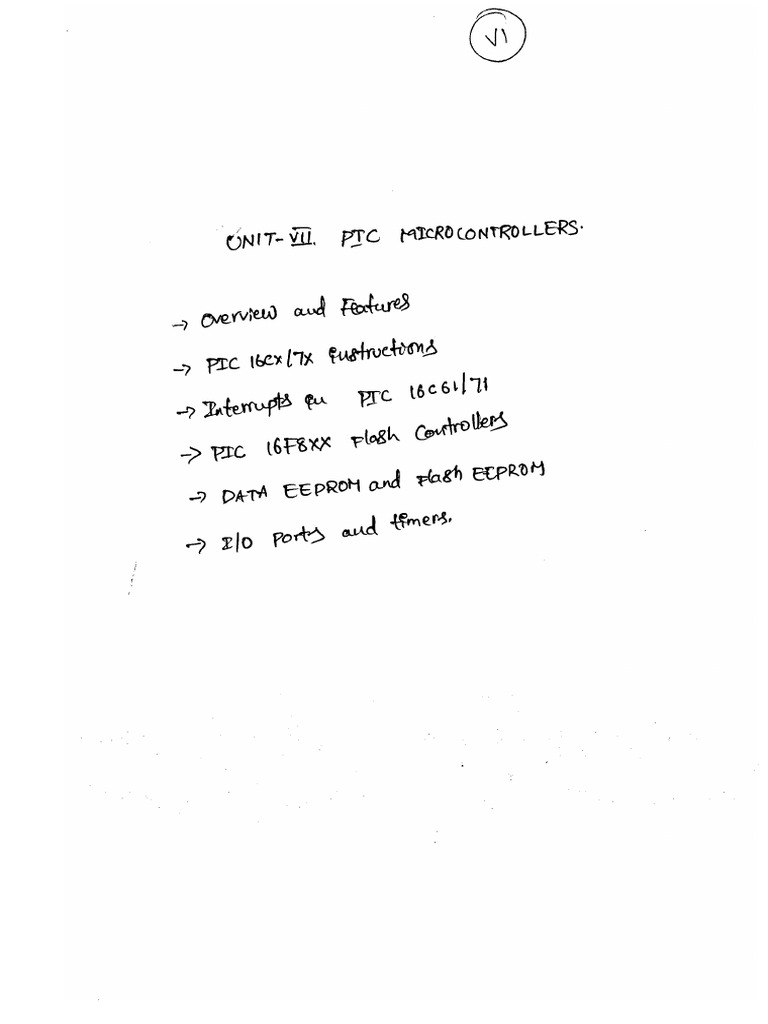 VI
UNIT-VII. PIC MICROCONTROLLERS.
→ Overview and Features
→ PIC 16CX/7X instructions
→ Interrupts in PIC 16C61/71
→ PIC 16F8XX Flash Controllers
→ DATA EEPROM and Flash EEPROM
→ I/O Ports and timers.